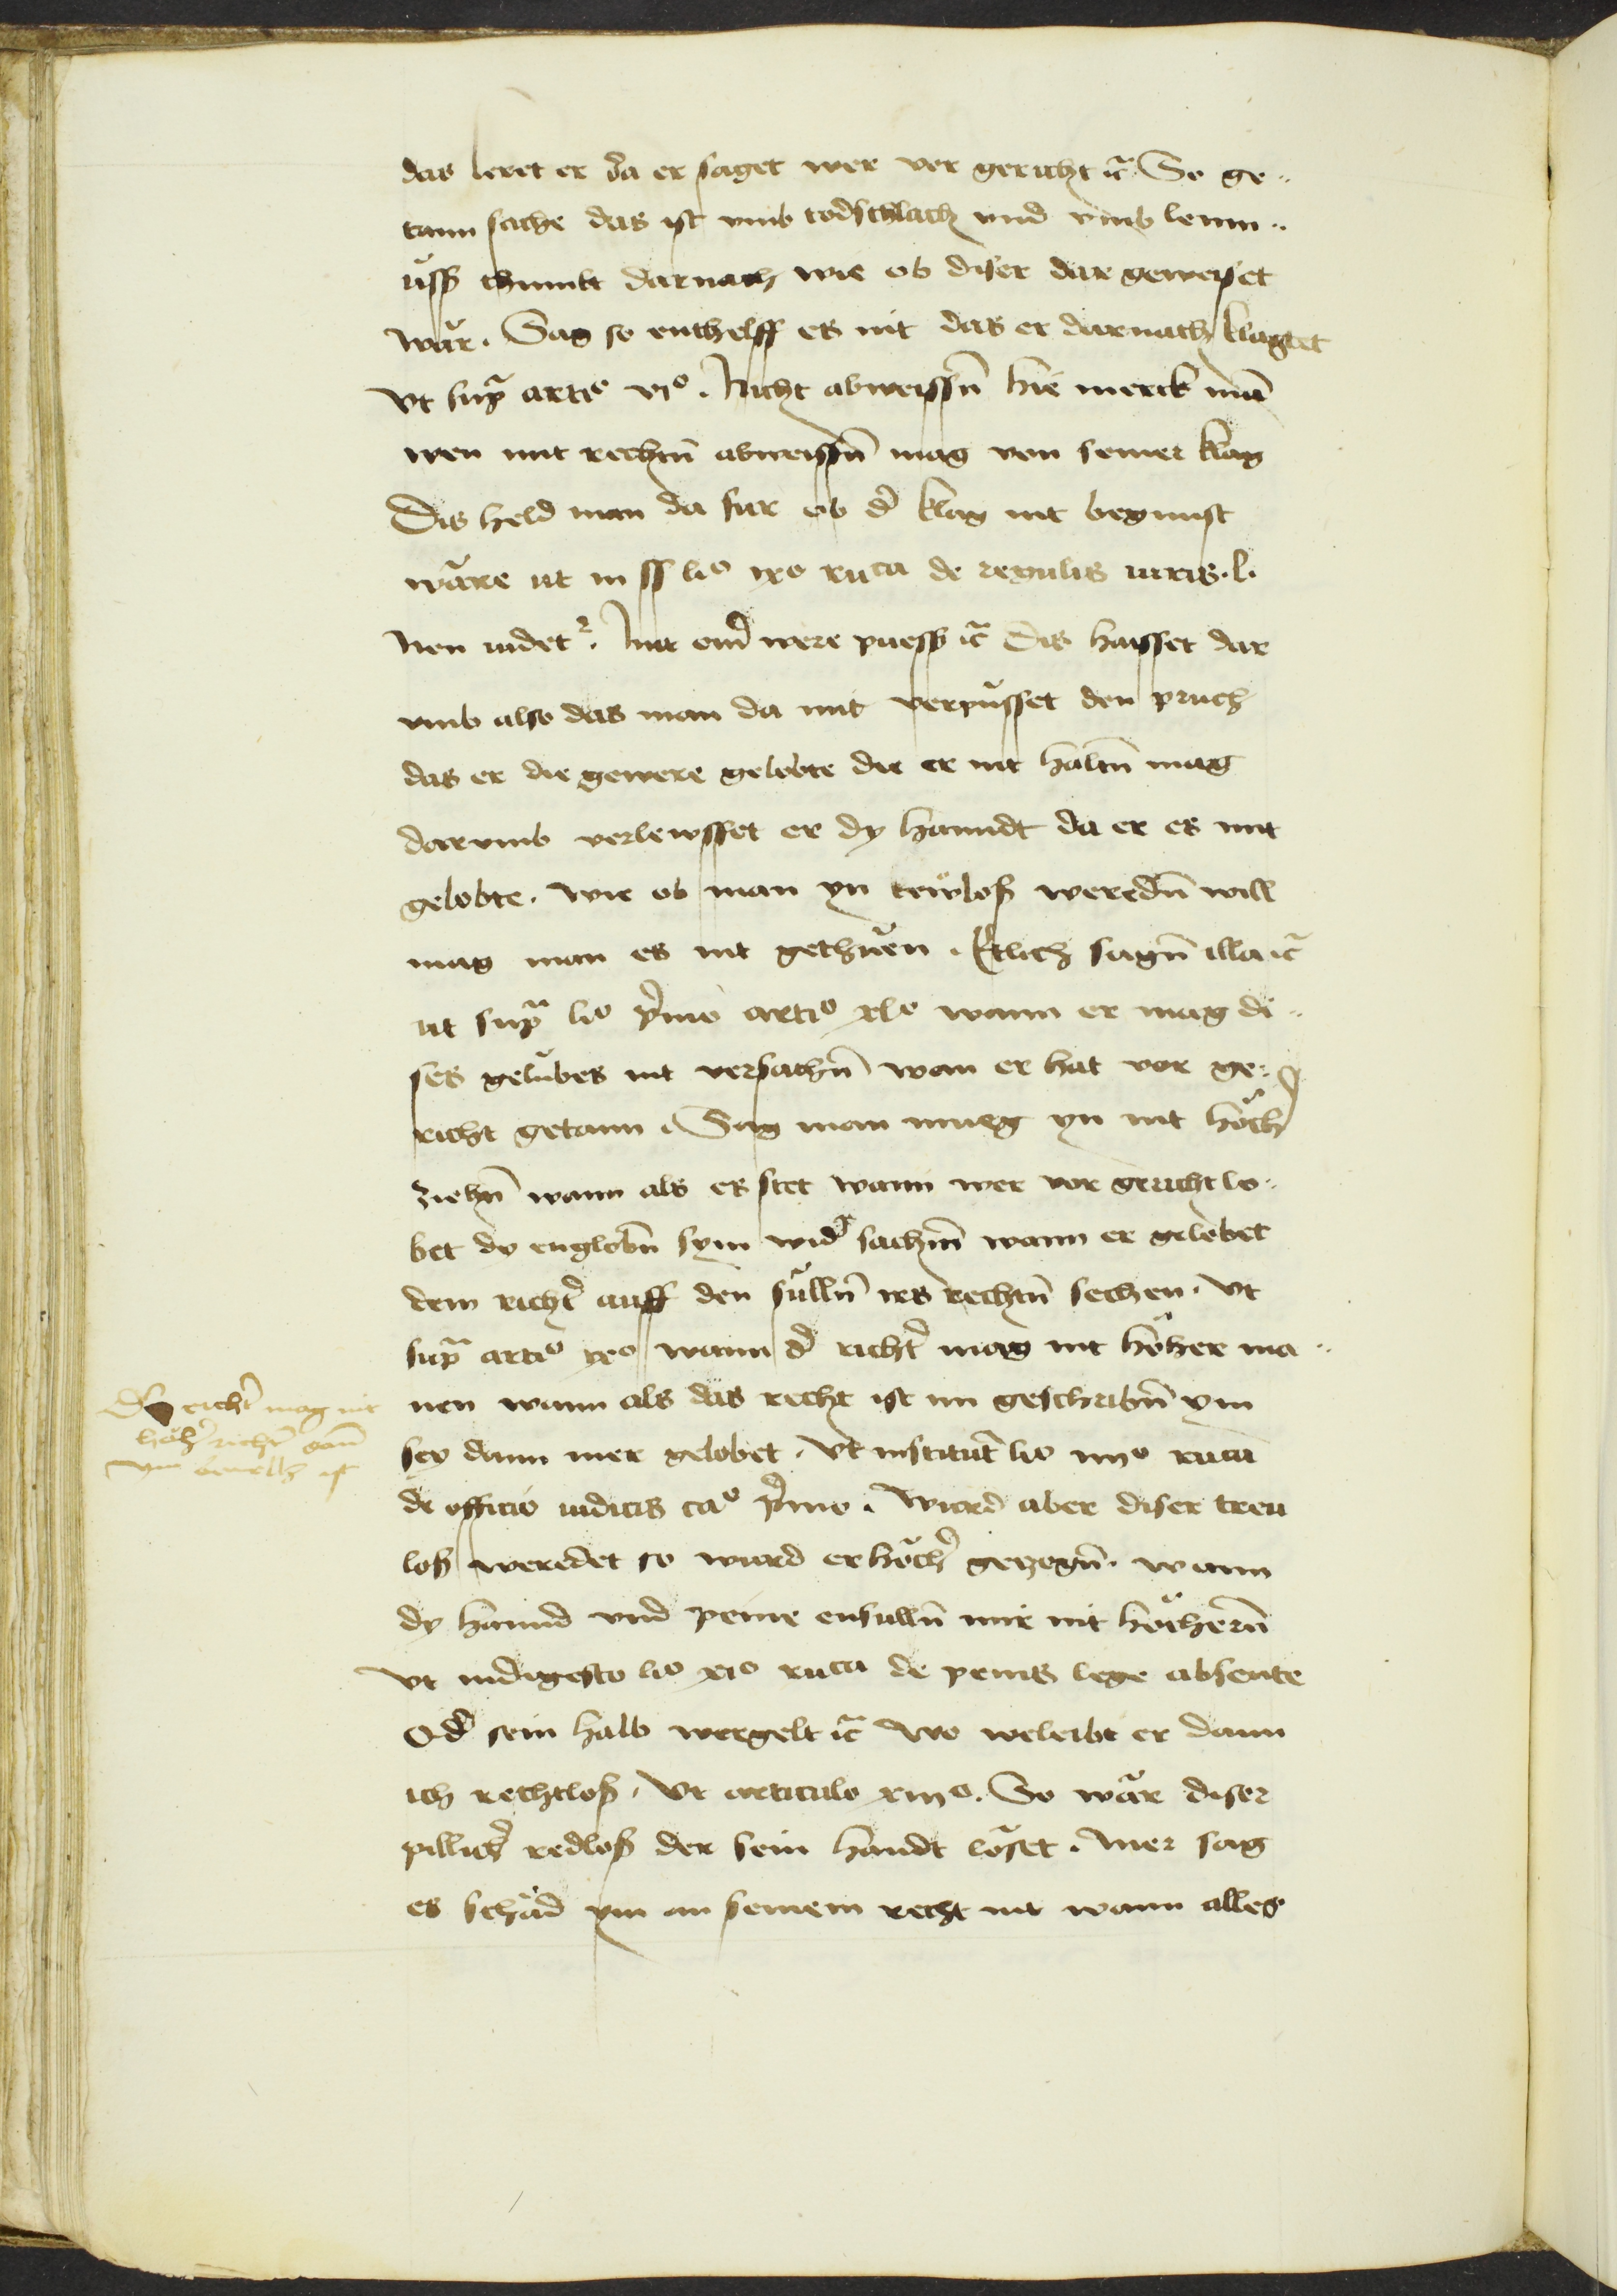 das leret er da er saget wer vor gericht etc̃ So ge..
tann sache das ist vmb todschlach vnd vmb lemm..
üss chumbt darnach wie ob diser dar geweiset
wär. Sag so enthelff es nit das er darnach klagtet
Vt sup̃ artiᵒ viᵒ. Nicht abweissn̄ hie merck man̄
wen mit rechtn̄ abweissn̄ mag von seiner klag
Dis held man da fur ob d̓ klag nit begunst
wäre ut in ff liᵒ xᵒ ruca de regulis iuris. l.
Non uidet². Mit ein̓ were puess etc̃ Dis haisset dar
vmb also das man da mit verpüsset den pruch
das er die gewere gelobte die er nit haltn̄ mag
darvmb verlewsset er dy hanndt da er es mit
gelobte. wie ob man yn trẅloß weredn̄ will
mag man es nit gethüen. Etlich sagn̄ illa etc̃
ut sup̃ liᵒ p̓mo artiᵒ xlᵒ wann er mag di..
ses gelübes nit versachn̄ wan er hat vor ge..
richt getann. Sag man mueg yn nit höch̓
ziehn̄ wann als es stet wann wer vor gericht lo..
bet dy englobn̄ sym wid̓ sachm̄ wann er gelobet
dem richt̓ auff den sülln̄ irs rechtn̄ sechen. Vt
sup̃ artiᵒ xᵒ wann d̓ richt̓ mag nit höher ma..
nen wann als das recht ist im geschribn̄ ym
sey dann mer gelobet. Vt institut̄ liᵒ iiiiᵒ ruca
de officio iudicis caᵒ p̓mo. Wurd aber diser treu
loß weredet so wurd er höch̓ gezogn̄. wann
dy hannd vnd peine ensulln̄ wir nit höchern̄
Vt indigesto liᵒ xiᵒ ruca de penis lege absente
Od̓ sein halb wergelt etc̃ wo weleibt er dann
ich rechtloß. Vt articulo xiiiᵒ. So wär diser
pillich̓ redloß der sein handt löset. Mer sag
es schäd ym an seinem recht nit wann alles
D̓ richt̓ mag nit
höh̓ richt̓ dan̄
ym beuelh ist